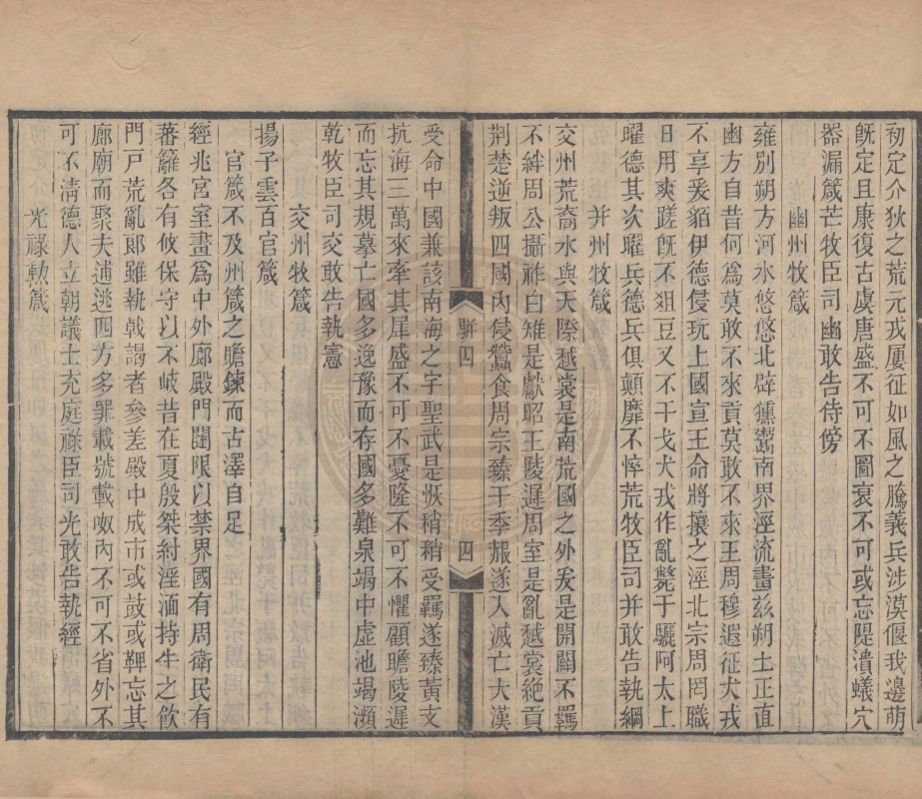 初定介狄之荒元戎屢征如風之騰義兵涉漠偃我邊萌
旣定且康復古虞唐盛不可不圖衰不可或忘隄潰蟻穴
器漏箴芒牧臣司幽敢告侍傍
幽州牧箴
雍別朔方河水悠悠北辟獯鬻南界涇流畫兹朔土正直
幽方自昔何爲莫敢不來貢莫敢不來王周穆遐征犬戎
不享爰貊伊德侵玩上國宣王命將攘之涇北宗周罔職
日用爽蹉旣不俎豆又不干戈犬戎作亂斃于驪阿太上
曜德其次曜兵德兵俱顛靡不悴荒牧臣司并敢告執綱
并州牧箴
交州荒裔水與天際越裳是南荒國之外爰是開闢不羈
不絆周公攝祚白雉是獻昭王陵遲周室是亂越裳絶貢
荆楚逆叛四國內侵蠶食周宗臻于季赧遂入滅亡大漢
駢四
四
受命中國兼該南海之宇聖武是恢稍稍受羈遂臻黃支
抗海三萬來牽其犀盛不可不憂隆不可不懼顧瞻陵遲
而忘其規摹亡國多逸豫而存國多難泉竭中虛池竭瀕
乾牧臣司交敢告執憲
交州牧箴
揚子雲百官箴
官箴不及州箴之贍鍊而古澤自足
經兆宮室畫爲中外廊殿門闥限以禁界國有周衛民有
蕃籬各有攸保守以不岐昔在夏殷桀紂淫湎持牛之飲
門戸荒亂郞雖執戟謁者參差殿中成市或鼓或鞞忘其
廊廟而聚夫逋逃四方多罪載號載呶內不可不省外不
可不淸德人立朝議士充庭祿臣司光敢告執經
光祿勲箴